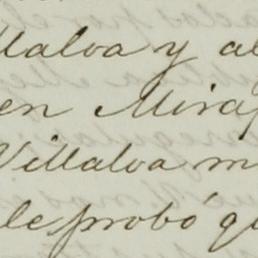 llalva y al
en Miráf
Villalva m
le probó qu